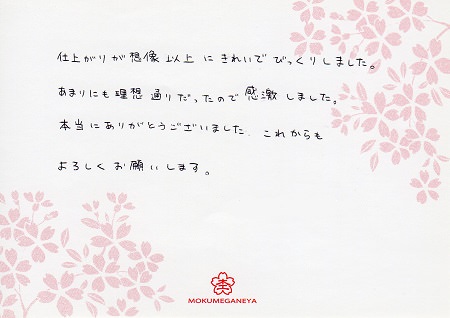 仕上がりが想像以上にきれいでびっくりしました。
あまりにも理想通りだったので感激しました。
本当にありがとうございました. これからも
よろしくお願いします。
杢
MOKUMEGANEYA